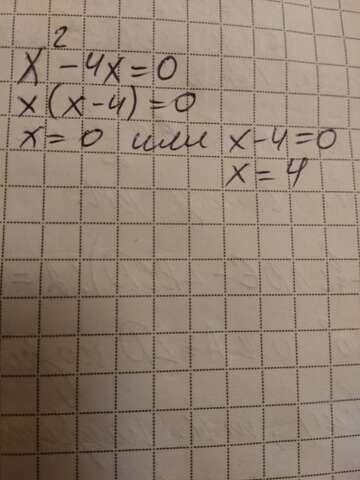 x² - 4x = 0
x(x - 4) = 0
x = 0 или x - 4 = 0
x = 4